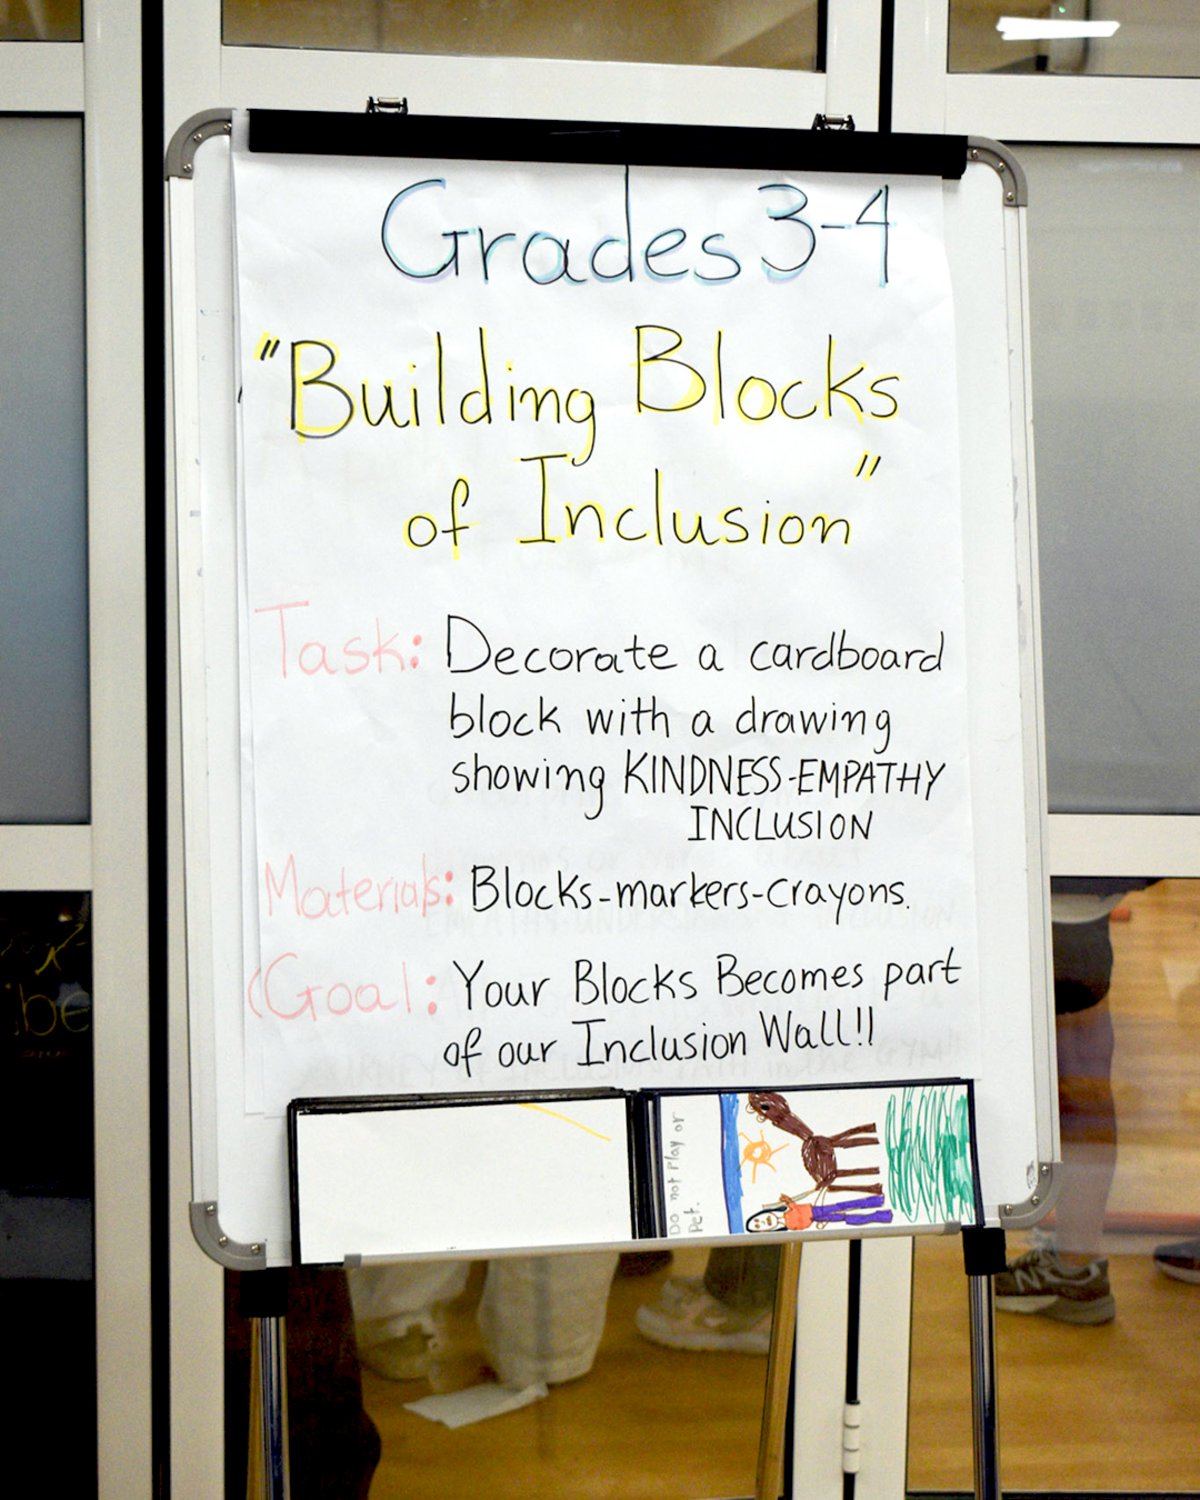 Grades 3-4
"Building Blocks
of Inclusion"
Task: Decorate a cardboard
block with a drawing
showing KINDNESS-EMPATHY
INCLUSION
Materials: Blocks-markers-crayons.
Goal: Your Blocks Becomes part
of our Inclusion Wall!!
Do not Play or
Pet.
be